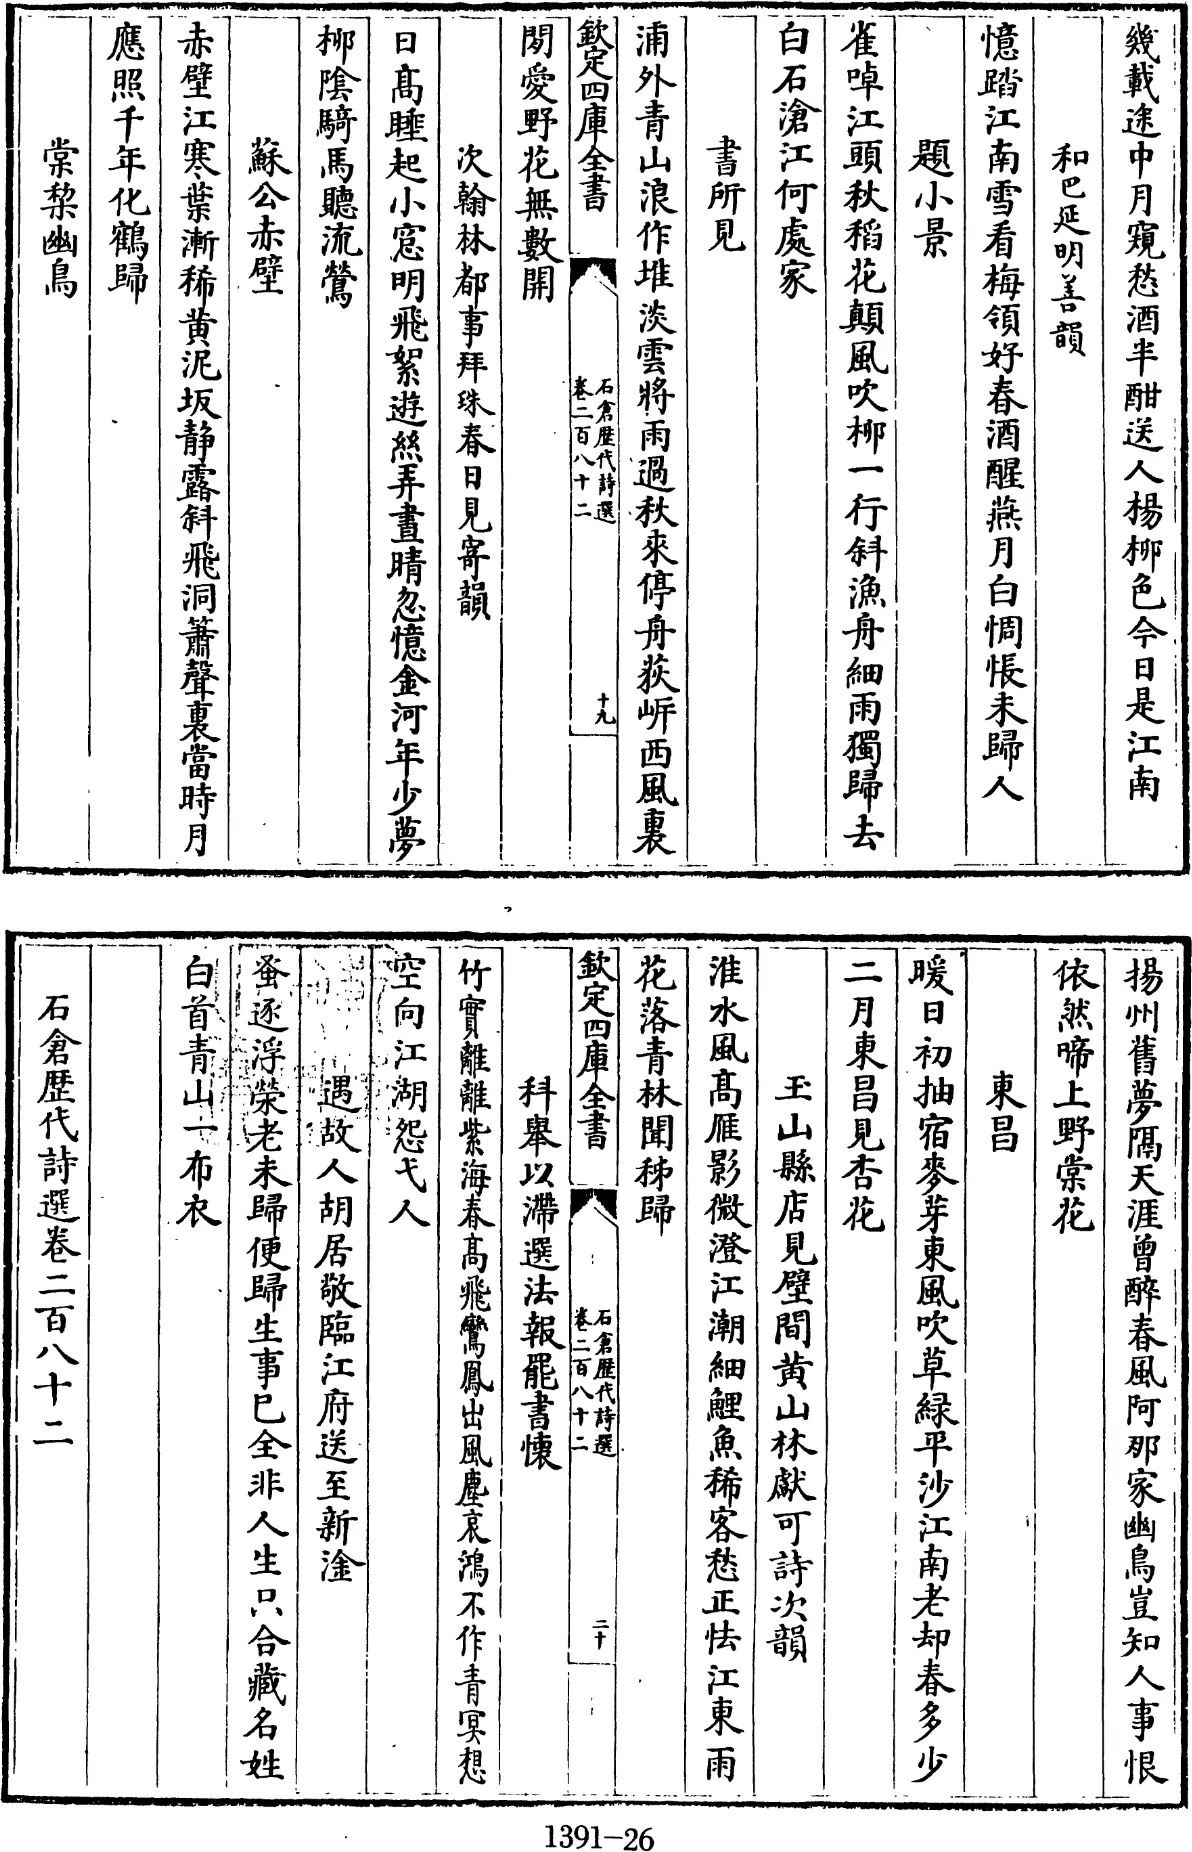 幾載途中月窺愁酒半酣送人楊柳色今日是江南
和巴延明善韻
憶踏江南雪看梅領好春酒醒燕月白惆悵未歸人
題小景
雀啅江頭秋稻花顛風吹柳一行斜漁舟細雨獨歸去
白石滄江何處家
書所見
浦外青山浪作堆淡雲將雨過秋來停舟荻岸西風裏
欽定四庫全書
石倉歷代詩選
卷二百八十二
十九
閒愛野花無數開
次翰林都事拜珠春日見寄韻
日高睡起小窓明飛絮遊絲弄晝晴忽憶金河年少夢
柳陰騎馬聽流鶯
蘇公赤壁
赤壁江寒葉漸稀黄泥坂靜露斜飛洞簫聲裏當時月
應照千年化鶴歸
棠棃幽鳥
揚州舊夢隔天涯曾醉春風阿那家幽鳥豈知人事恨
依然啼上野棠花
東昌
暖日初抽宿麥芽東風吹草綠平沙江南老却春多少
二月東昌見杏花
玉山縣店見壁間黄山林獻可詩次韻
淮水風高雁影微澄江潮細鯉魚稀客愁正怯江東雨
花落青林聞秭歸
欽定四庫全書
石倉歷代詩選
卷二百八十二
二十
科舉以滯選法報罷書懷
竹實離離紫海春高飛鸞鳳出風塵哀鴻不作青冥想
空向江湖怨弋人
遇故人胡居敬臨江府送至新淦
蚤逐浮榮老未歸便歸生事已全非人生只合藏名姓
白首青山一布衣
石倉歷代詩選卷二百八十二
1391-26